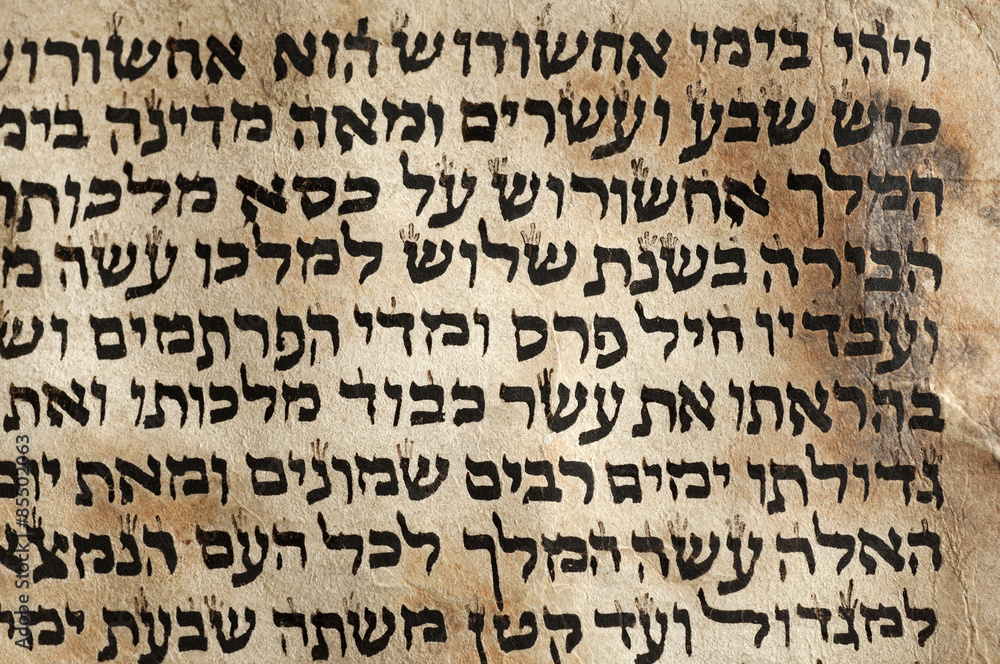 ויהי בימי אחשורוש הוא אחשורוש
כוש שבע ועשרים ומאה מדינה בימ
המלך אחשורוש על כסא מלכותו
הבירה בשנת שלוש למלכו עשה מ
ועבדיו חיל פרס ומדי הפרתמים וש
בהראתו את עשר כבוד מלכותו ואת
גדולתו ימים רבים שמונים ומאת
האלה עשה המלך לכל העם הנמצא
למגדול ועד קטן משתה שבעת ימי
Adobe Stock | #85502063